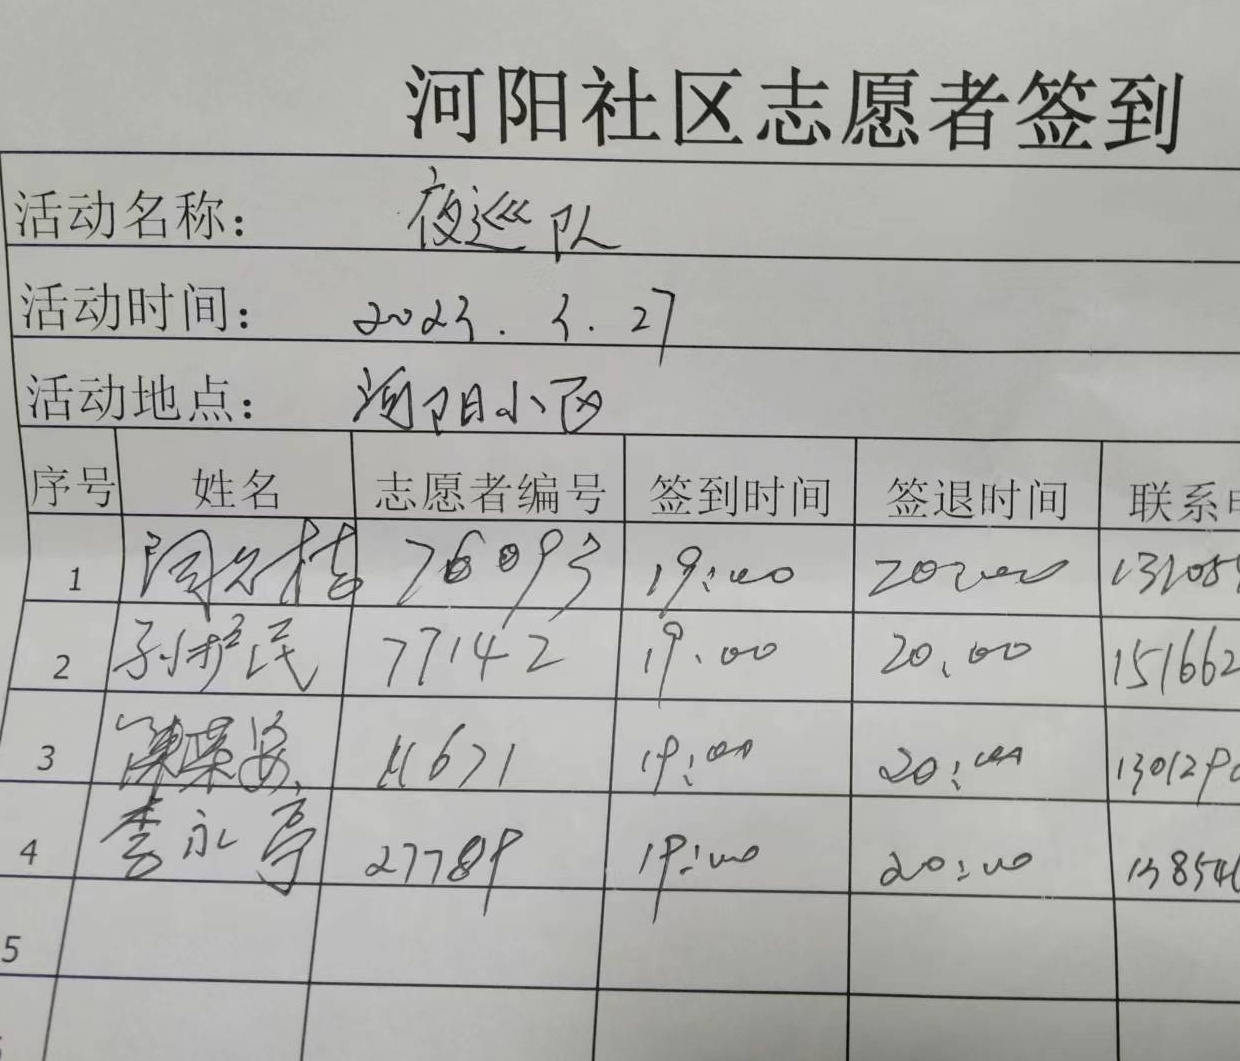 河阳社区志愿者签到
活动名称： 夜巡队
活动时间： 2023. 3. 27
活动地点： 河阳小区
序号 姓名 志愿者编号 签到时间 签退时间 联系
1 76093 19:00 20:00
2 孙护民 77142 19.00 20.00 151662
3 陳荣安 11671 19:00 20:00
4 李永亭 27789 19:00 20:00
5